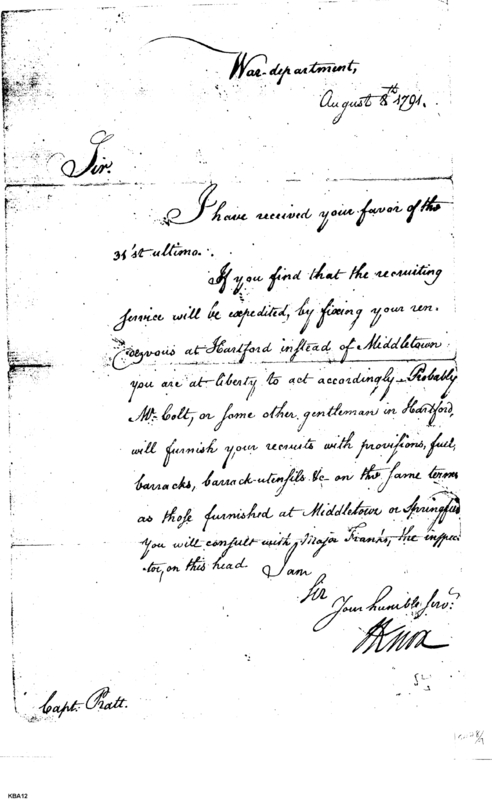 War-department,
August 8th 1791.
Sir.
I have received your favor of the
31'st ultimo.
If you find that the recruiting
service will be expedited, by fixing your ren-
dezvous at Hartford instead of Middletown
you are at liberty to act accordingly — Probably
Mr. Colt, or some other gentleman in Hartford,
will furnish your recruits with provisions, fuel,
barracks, barrack-utensils &c on the same terms
as those furnished at Middletown or Springfield
You will consult with, Major Franks, the inspec-
tor, on this head I am
Sir
Your humble Servt.
HKnox
Capt. Pratt.
KBA12